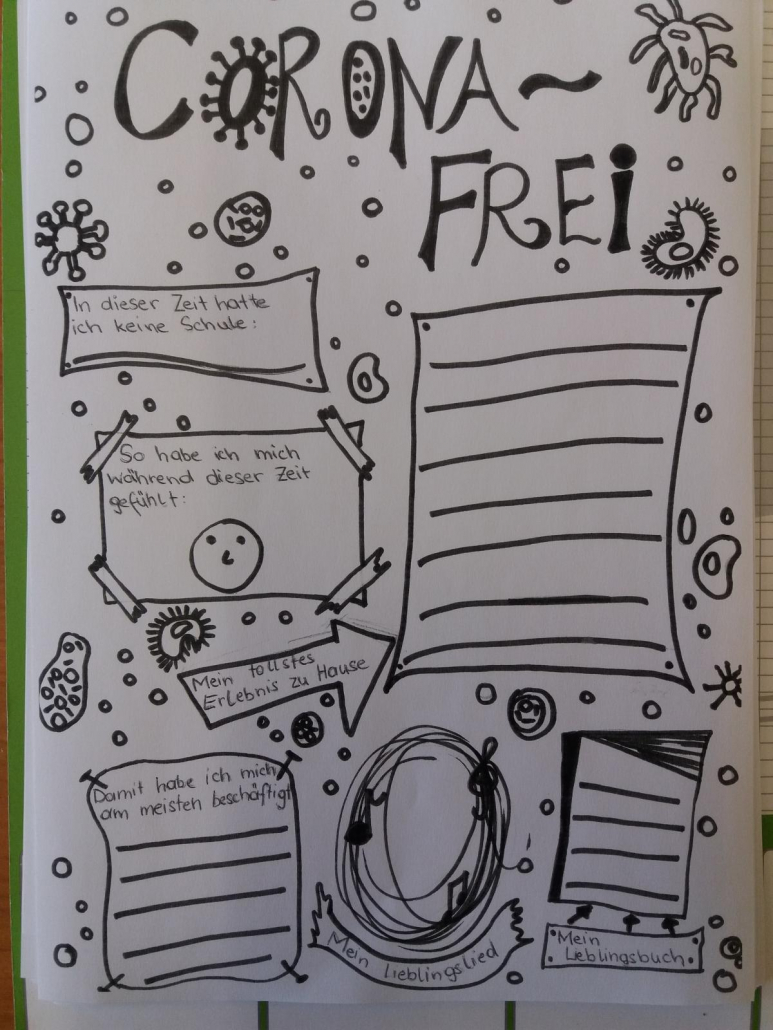 CORONA-
FREi
In dieser Zeit hatte
ich keine Schule:
So habe ich mich
während dieser Zeit
gefühlt:
Mein tollstes
Erlebnis zu Hause
Damit habe ich mich
am meisten beschäftigt
Mein Lieblingslied
Mein
Lieblingsbuch